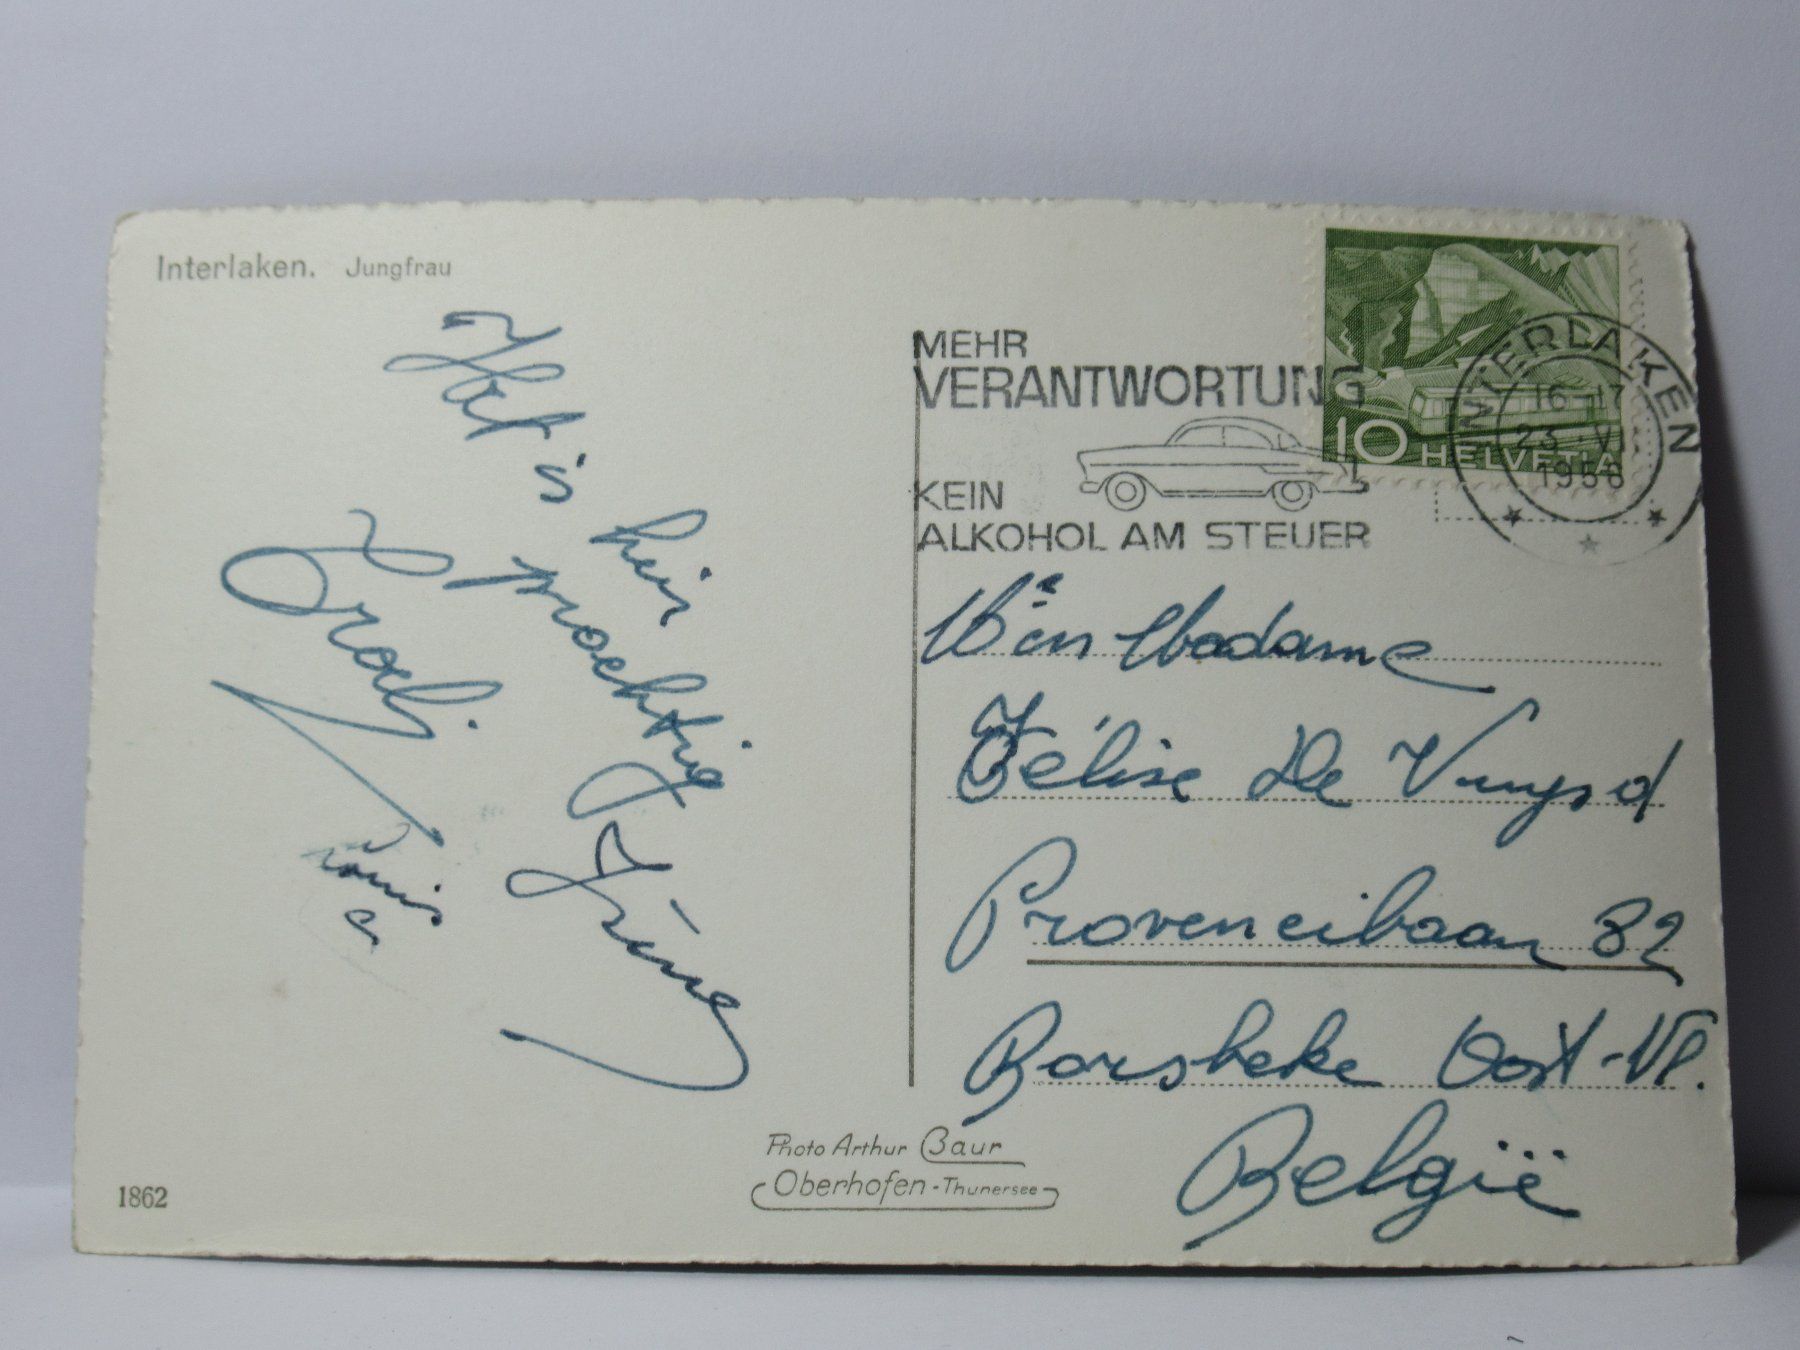 Interlaken. Jungfrau
Het is
hier
prachtig
Irène
Louis
MEHR
VERANTWORTUNG
KEIN
ALKOHOL AM STEUER
10 HELVETIA
INTERLAKEN
16-17
23.V
1956
Madame
Félise De Vuyst
Provencibaan 82
Borsbeke Oost-Vl.
België
Photo Arthur Baur
Oberhofen-Thunersee
1862